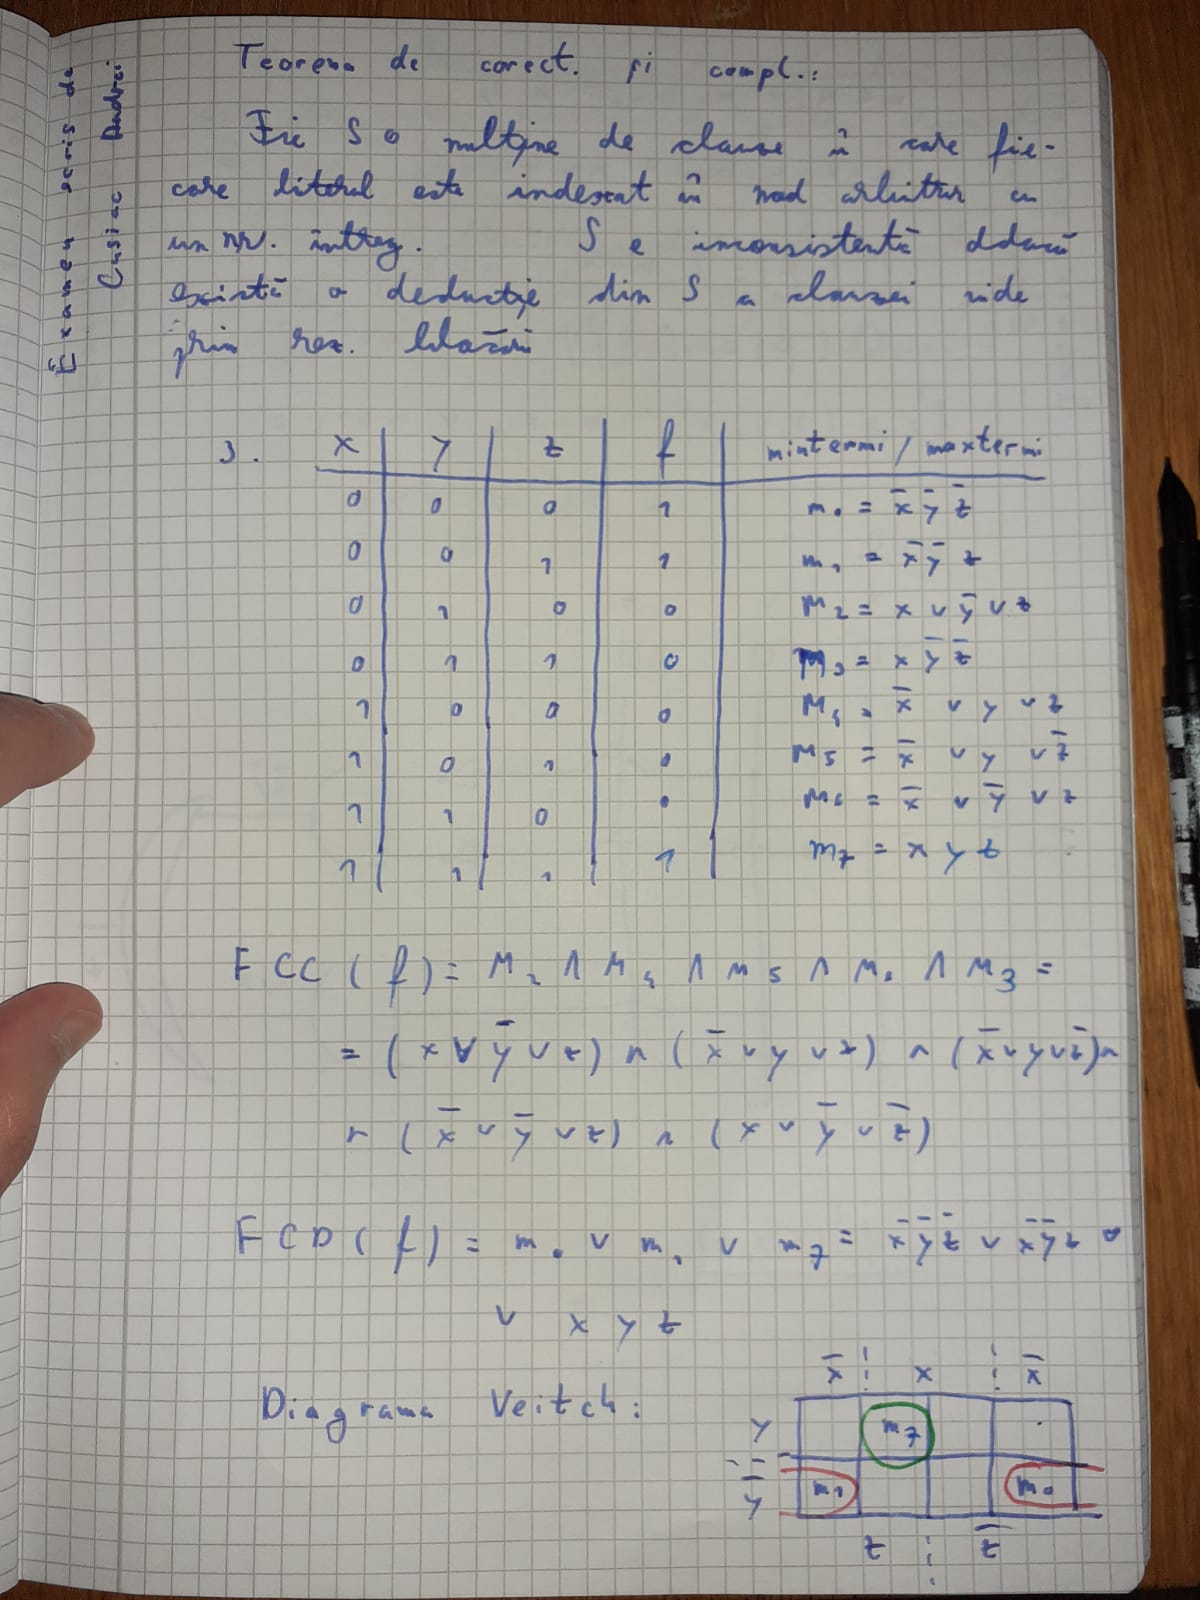 Examen scris de
Cusiac Andrei
Teorema de corect. și compl.:
Fie S o mulțime de clauze în care fie-
care literal este indexat în mod arbitrar cu
un nr. întreg. S e inconsistentă ddacă
există o deducție din S a clauzei vide
prin rez. blocării
3. x y z f mintermi / maxtermi
0 0 0 1 m₀ = x̄ ȳ z̄
0 0 1 1 m₁ = x̄ ȳ z
0 1 0 0 M₂ = x ∨ ȳ ∨ z
0 1 1 0 M₃ = x ȳ z̄
1 0 0 0 M₄ = x̄ ∨ y ∨ z
1 0 1 0 M₅ = x̄ ∨ y ∨ z̄
1 1 0 0 M₆ = x̄ ∨ ȳ ∨ z
1 1 1 1 m₇ = x y z
FCC(f) = M₂ ∧ M₄ ∧ M₅ ∧ M₆ ∧ M₃ =
= (x ∨ ȳ ∨ z) ∧ (x̄ ∨ y ∨ z) ∧ (x̄ ∨ y ∨ z̄) ∧
∧ (x̄ ∨ ȳ ∨ z) ∧ (x ∨ ȳ ∨ z̄)
FCD(f) = m₀ ∨ m₁ ∨ m₇ = x̄ ȳ z̄ ∨ x̄ ȳ z ∨
∨ x y z
Diagrama Veitch:
x̄ x x̄
y m₇
ȳ m₁ m₀
z z̄